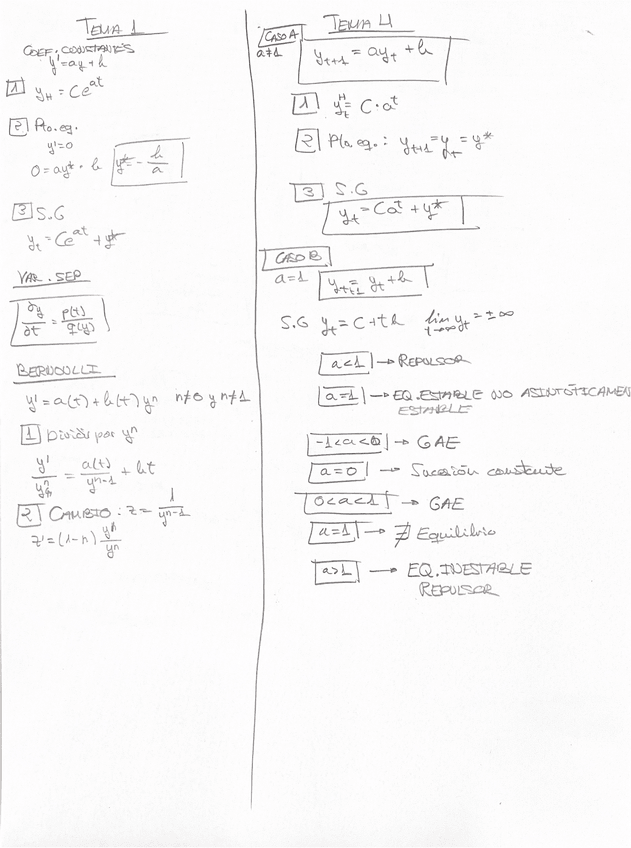 TEMA 1
COEF. CONSTANTES
y' = ay + h
1 y_H = Ce^{at}
2 Pto. eq.
y' = 0
0 = ay* + h y* = - h/a
3 S.G
y_t = Ce^{at} + y*
VAR. SEP
∂y/∂t = p(t)/q(y)
BERNOULLI
y' = a(t) + h(t) y^n n≠0 y n≠1
1 Dividir por y^n
y'/y^n = a(t)/y^{n-1} + ht
2 CAMBIO : z = 1/y^{n-1}
z' = (1-n) y'/y^n
TEMA 4
CASO A
a≠1 y_{t+1} = ay_t + h
1 y_t^H = C · a^t
2 Pto. eq. : y_{t+1} = y_t = y*
3 S.G
y_t = Ca^t + y*
CASO B
a=1 y_{t+1} = y_t + h
S.G y_t = C + th lim_{t→∞} y_t = ±∞
a<1 → REPULSOR
a=1 → EQ. ESTABLE NO ASINTÓTICAMEN
ESTABLE
-1<a<0 → GAE
a=0 → Sucesión constante
0<a<1 → GAE
a=1 → ∄ Equilibrio
a>1 → EQ. INESTABLE
REPULSOR